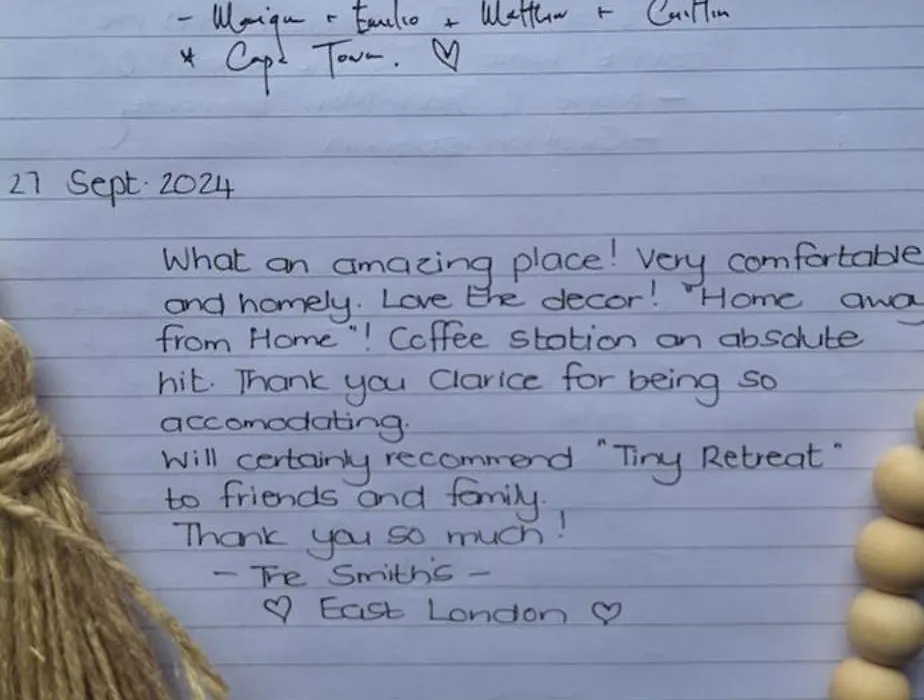 - Monique + Emilio + Matthew + Caitlin
* Cape Town. ♡
27 Sept. 2024
What an amazing place! Very comfortable
and homely. Love the decor! "Home awa
from Home"! Coffee station an absolute
hit. Thank you Clarice for being so
accomodating.
Will certainly recommend "Tiny Retreat"
to friends and family.
Thank you so much!
- The Smith's -
♡ East London ♡